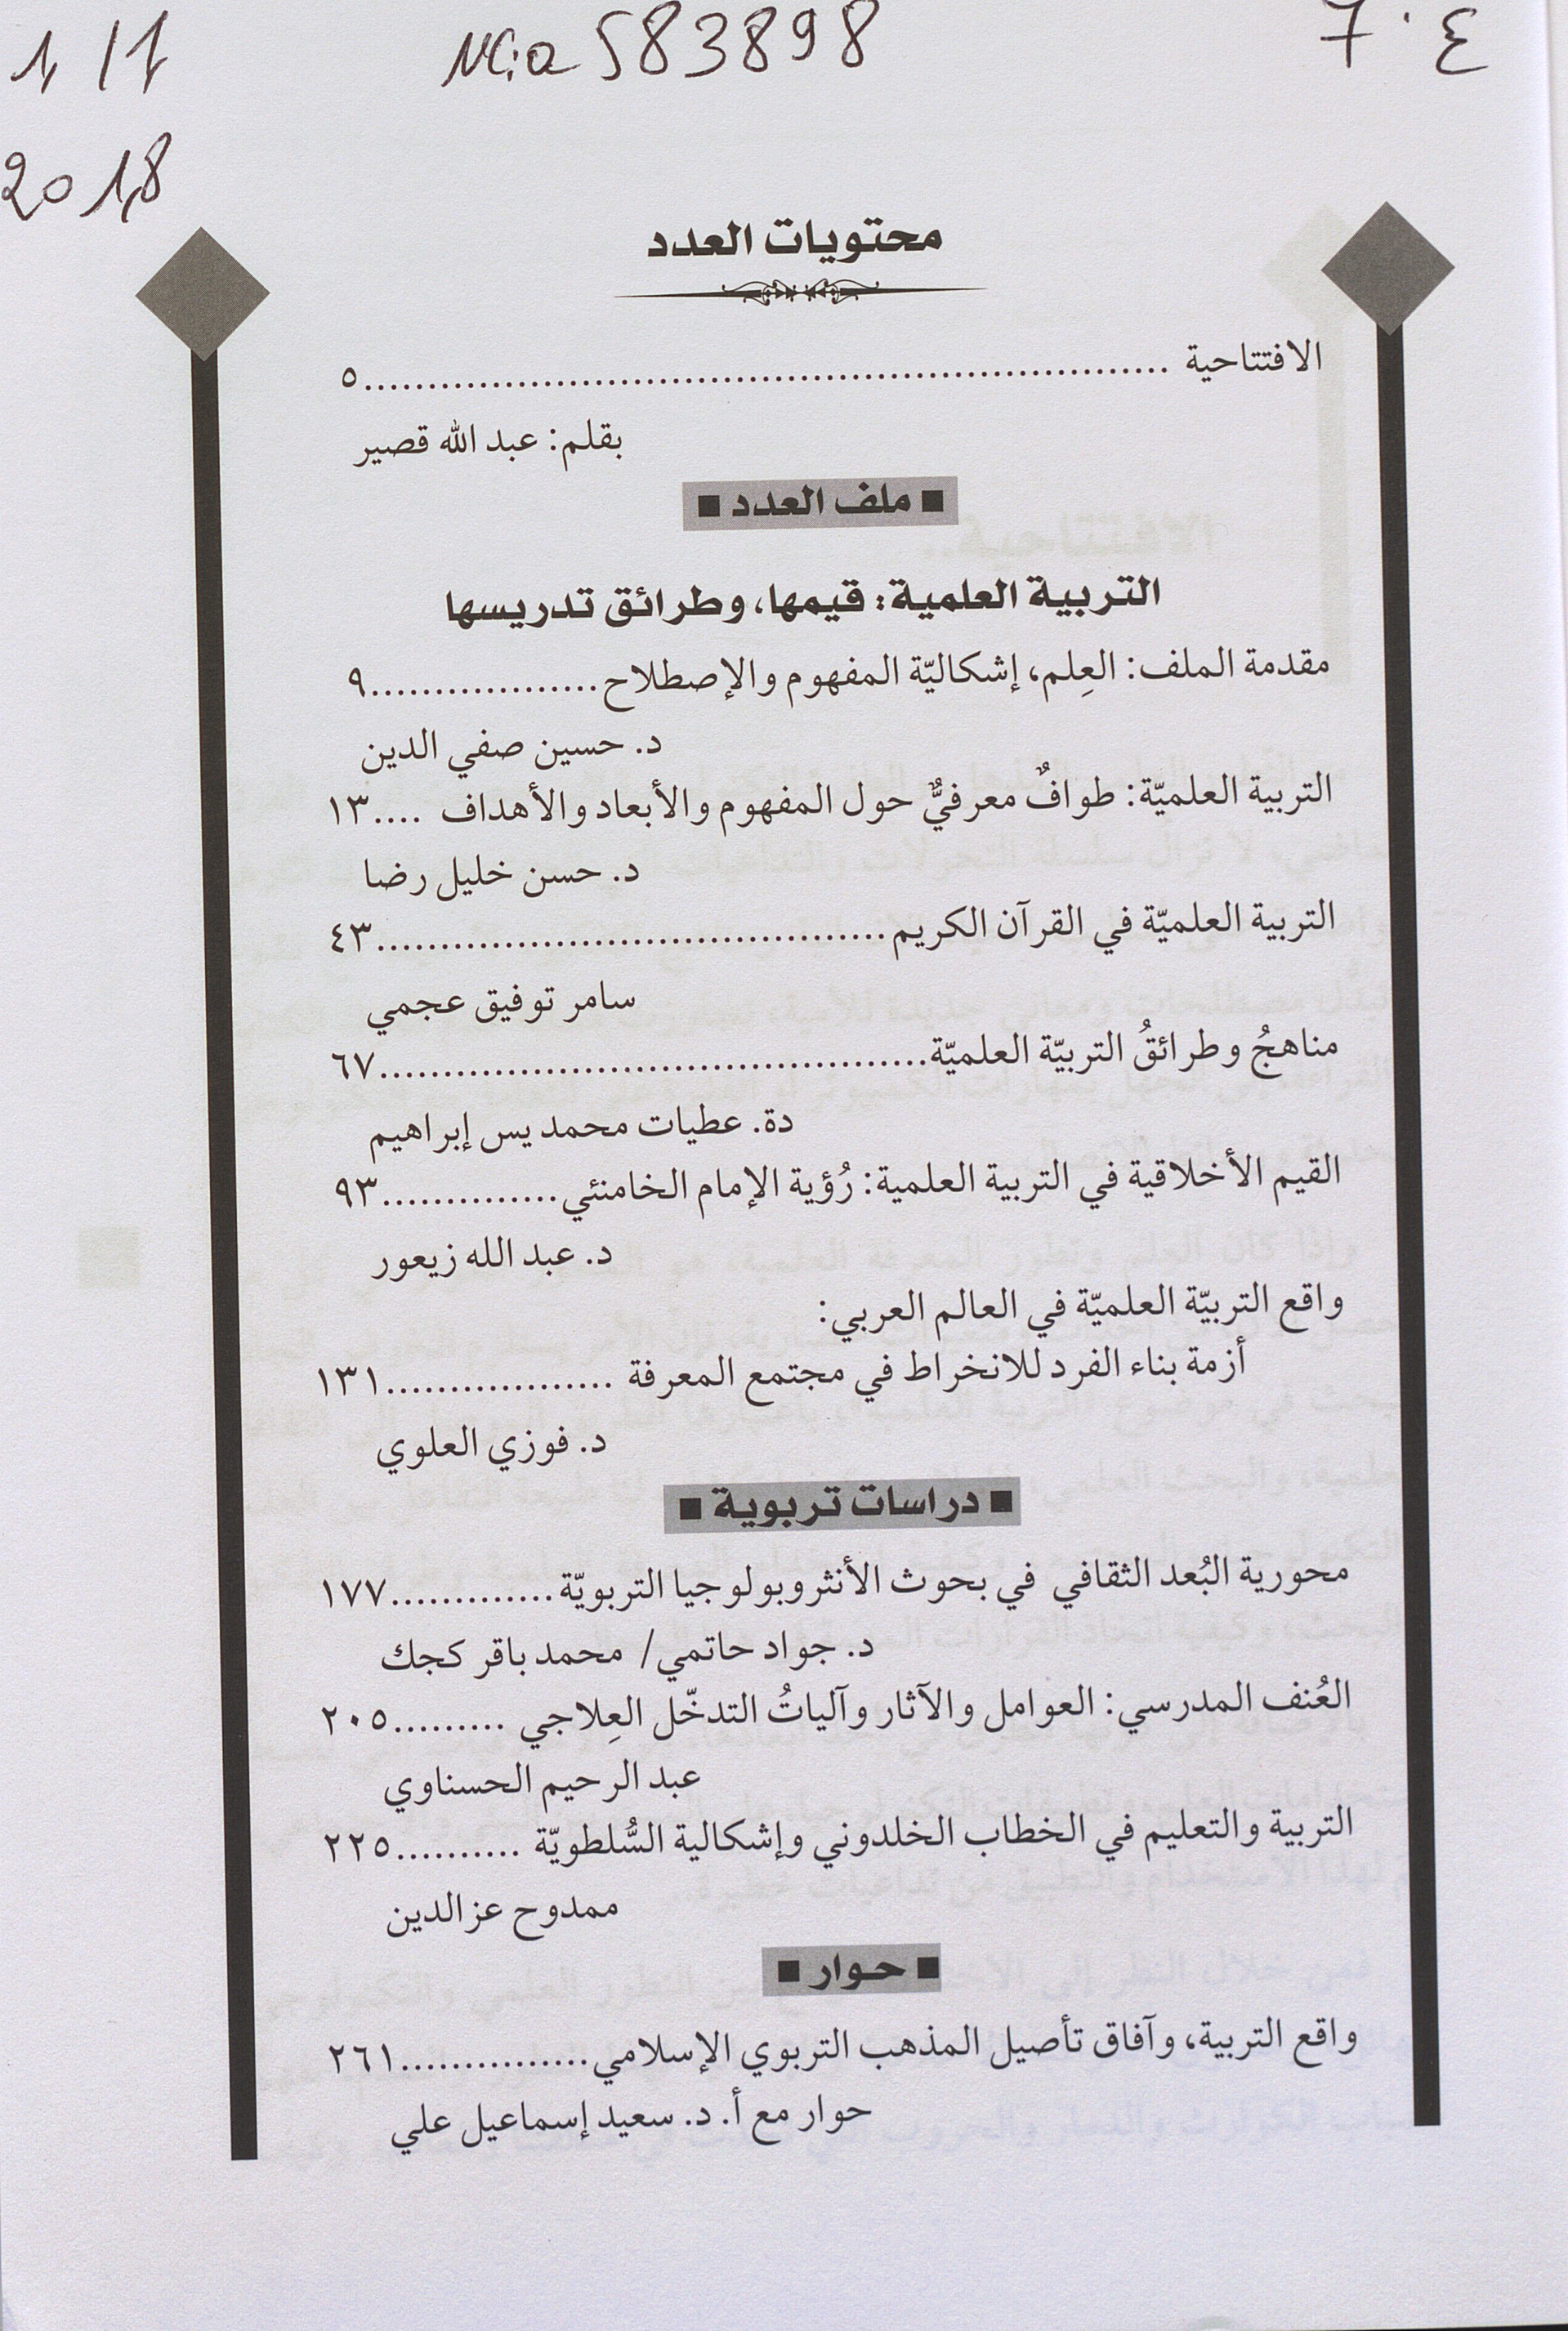 1 / 1
583898
2018
محتويات العدد
الافتتاحية ................................................................٥
بقلم: عبد الله قصير
■ ملف العدد ■
التربية العلمية: قيمها، وطرائق تدريسها
مقدمة الملف: العِلم، إشكاليّة المفهوم والإصطلاح..................٩
د. حسين صفي الدين
التربية العلميّة: طوافٌ معرفيٌّ حول المفهوم والأبعاد والأهداف ....١٣
د. حسن خليل رضا
التربية العلميّة في القرآن الكريم........................................٤٣
سامر توفيق عجمي
مناهجُ وطرائقُ التربيّة العلميّة...........................................٦٧
دة. عطيات محمد يس إبراهيم
القيم الأخلاقية في التربية العلمية: رُؤية الإمام الخامنئي..............٩٣
د. عبد الله زيعور
واقع التربيّة العلميّة في العالم العربي:
أزمة بناء الفرد للانخراط في مجتمع المعرفة ..................١٣١
د. فوزي العلوي
■ دراسات تربوية ■
محورية البُعد الثقافي في بحوث الأنثروبولوجيا التربويّة.............١٧٧
د. جواد حاتمي/ محمد باقر كجك
العُنف المدرسي: العوامل والآثار وآلياتُ التدخّل العِلاجي .........٢٠٥
عبد الرحيم الحسناوي
التربية والتعليم في الخطاب الخلدوني وإشكالية السُّلطويّة ..........٢٢٥
ممدوح عز الدين
■ حوار ■
واقع التربية، وآفاق تأصيل المذهب التربوي الإسلامي...............٢٦١
حوار مع أ. د. سعيد إسماعيل علي